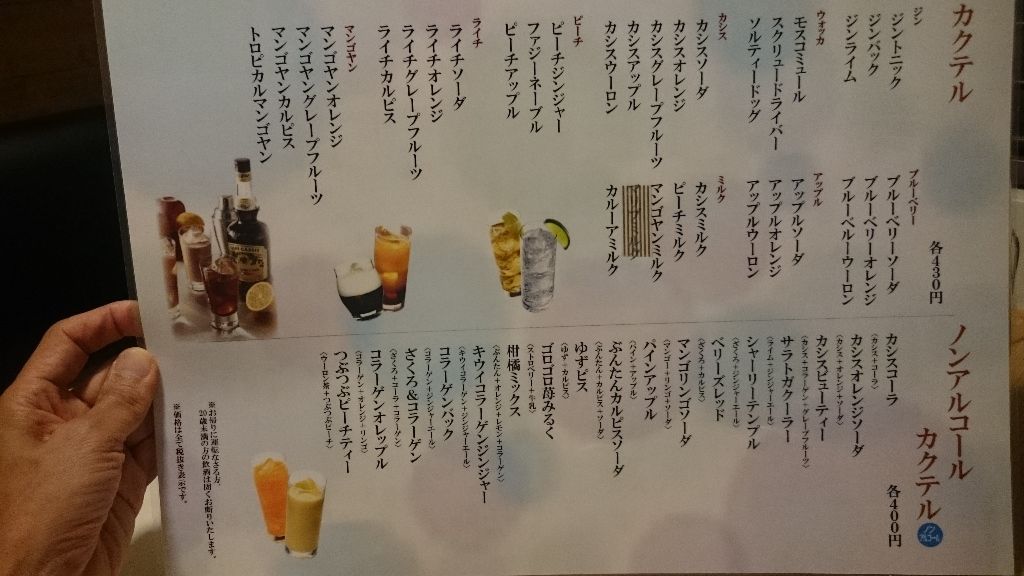 カクテル
各430円
ジン
ジントニック
ジンバック
ジンライム
ウォッカ
モスコミュール
スクリュードライバー
ソルティードッグ
カシス
カシスソーダ
カシスオレンジ
カシスグレープフルーツ
カシスアップル
カシスウーロン
ピーチ
ピーチジンジャー
ファジーネーブル
ピーチアップル
ライチ
ライチソーダ
ライチオレンジ
ライチグレープフルーツ
ライチカルピス
マンゴヤン
マンゴヤンオレンジ
マンゴヤングレープフルーツ
マンゴヤンカルピス
トロピカルマンゴヤン
ブルーベリー
ブルーベリーソーダ
ブルーベリーオレンジ
ブルーベルーウーロン
アップル
アップルソーダ
アップルオレンジ
アップルウーロン
ミルク
カシスミルク
ピーチミルク
マンゴヤンミルク
カルーアミルク
ノンアルコール
カクテル
ノンアルコール
各400円
カシスコーラ
(カシス+コーラ)
カシスオレンジソーダ
(カシス+オレンジ+ソーダ)
カシスビューティー
(カシス+コラーゲン+グレープフルーツ)
サラトガクーラー
(ライム+ジンジャーエール)
シャーリーテンプル
(ざくろ+ジンジャーエール)
ベリーズレッド
(ざくろ+カルピス)
マンゴリンゴソーダ
(マンゴー+リンゴ+ソーダ)
パインアップル
(パイン+アップル)
ぶんたんカルピスソーダ
(ぶんたん+カルピス+ソーダ)
ゆずピス
(ゆず+カルピス)
ゴロゴロ苺みるく
(ストロベリー+牛乳)
柑橘ミックス
(ぶんたん+オレンジ+レモン+コラーゲン)
キウイコラーゲンジンジャー
(キウイコラーゲン+ジンジャーエール)
コラーゲンバック
(コラーゲン+ジンジャーエール)
ざくろ&コラーゲン
(ざくろ+コーラ+コラーゲン)
コラーゲンオレップル
(コラーゲン+オレンジ+リンゴ)
つぶつぶピーチティー
(ウーロン茶+つぶつぶピーチ)
※お帰りに運転なさる方、
20歳未満の方の飲酒は固くお断りいたします。
※価格は全て税抜き表示です。